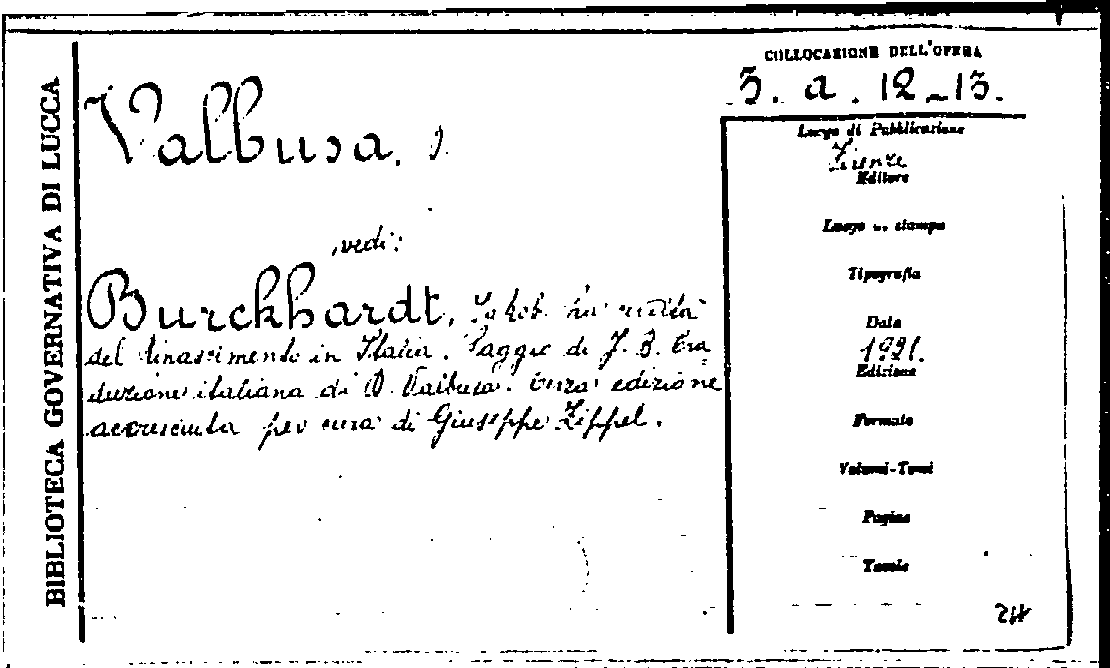 BIBLIOTECA GOVERNATIVA DI LUCCA
COLLOCAZIONE DELL'OPERA
3. a. 12-13.
Valbusa,
Luogo di Pubblicazione
Firenze
Editore
Luogo di stampa
vedi:
Tipografia
Burckhardt, Jakob. La civiltà
Data
del rinascimento in Italia. Saggio di J. B. Tra
1921.
duzione italiana di D. Valbusa. Terza edizione
Edizione
accresciuta per cura di Giuseppe Zippel.
Formato
Volumi-Tomi
Pagine
Tavole